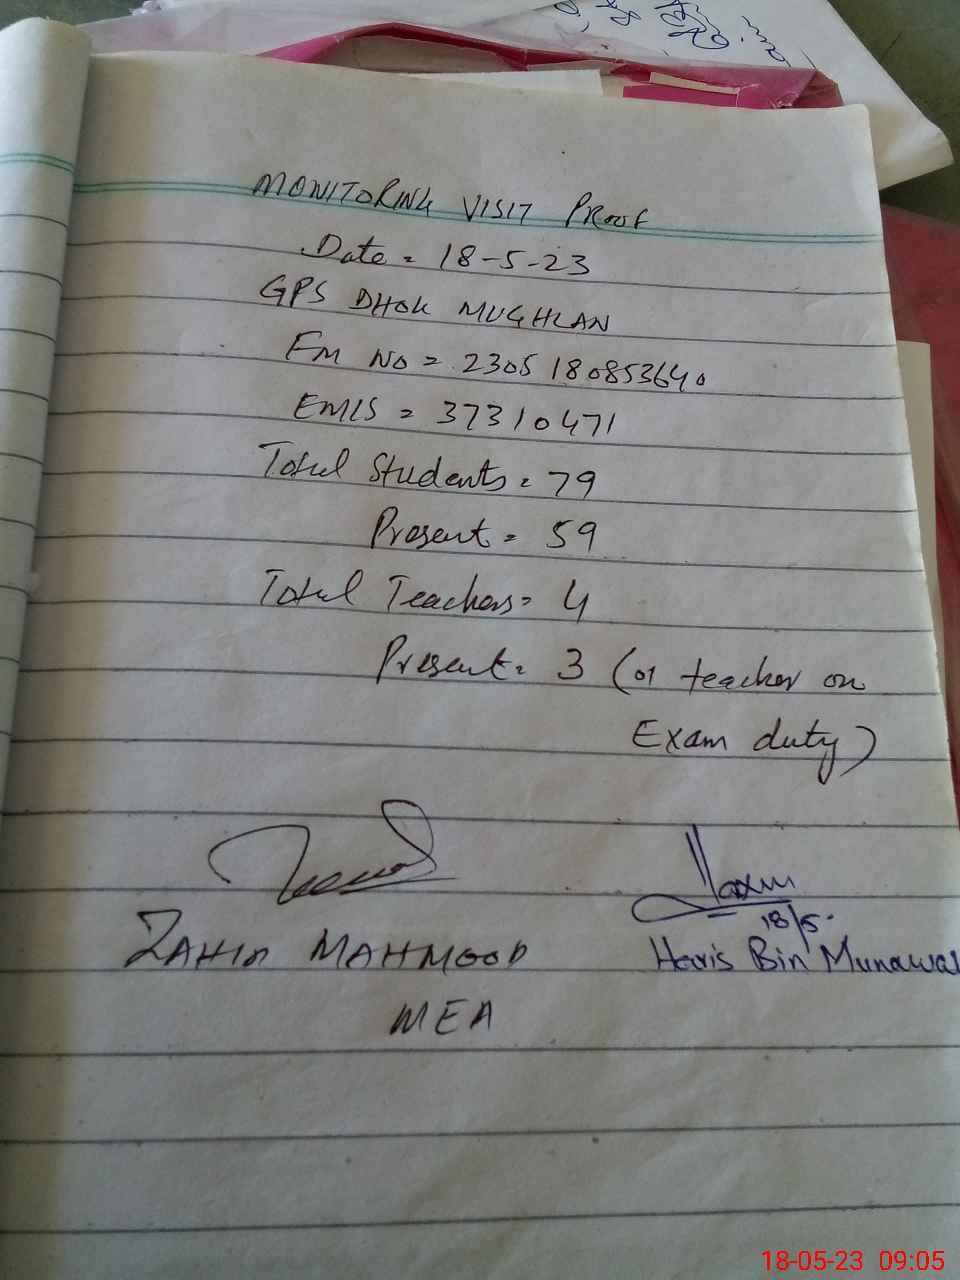 MONITORING VISIT PROOF
Date = 18-5-23
GPS DHOK MUGHLAN
FM NO = 2305180853640
EMIS = 37310471
Total Students = 79
Present = 59
Total Teachers = 4
Present = 3 (01 teacher on
Exam duty)
18/5.
ZAHID MAHMOOD
Haris Bin Munawar
MEA
18-05-23 09:05